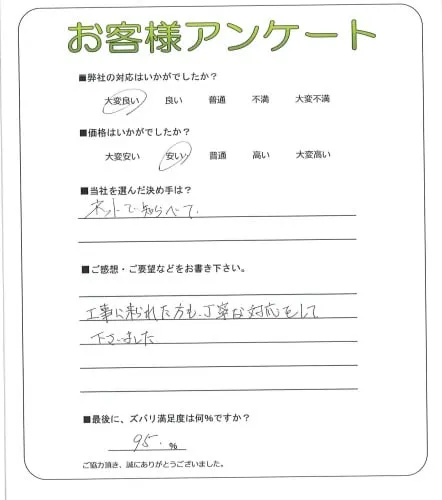 お客様アンケート
■弊社の対応はいかがでしたか?
大変良い 良い 普通 不満 大変不満
■価格はいかがでしたか?
大変安い 安い 普通 高い 大変高い
■当社を選んだ決め手は?
ネットで知らべて.
■ご感想・ご要望などをお書き下さい。
工事に来られた方も、丁寧な対応をして
下さいました
■最後に、ズバリ満足度は何%ですか?
95. %
ご協力頂き、誠にありがとうございました。